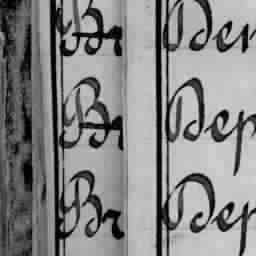 Br Der
Br Dep
Br Dep